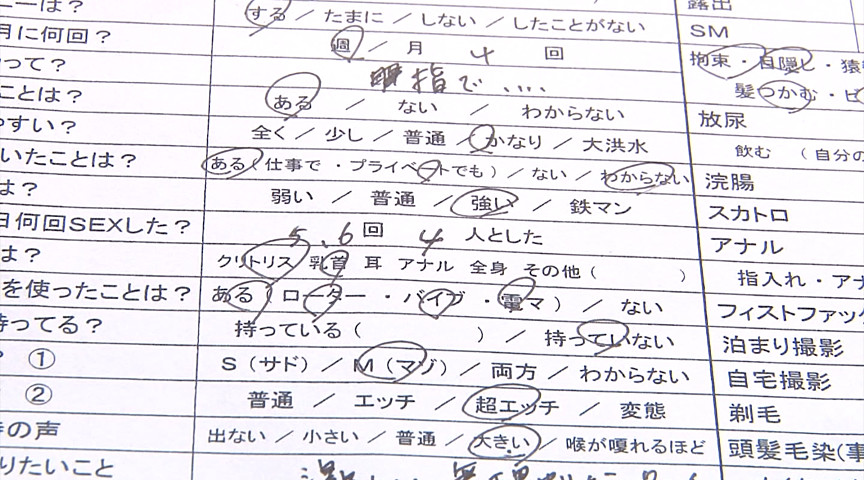 ーは？ する ／ たまに ／ しない ／ したことがない 露出
月に何回？ 週 ／ 月 4 回 SM
って？ 指で、、、、 拘束・目隠し・猿
ことは？ ある ／ ない ／ わからない 髪つかむ・ビ
やすい？ 全く ／ 少し ／ 普通 ／ かなり ／ 大洪水 放尿
いたことは？ ある（仕事で ・ プライベートでも） ／ ない ／ わからない 飲む （自分の
は？ 弱い ／ 普通 ／ 強い ／ 鉄マン 浣腸
日何回SEXした？ 5、6回 4 人とした スカトロ
は？ クリトリス 乳首 耳 アナル 全身 その他（ ） アナル
を使ったことは？ ある（ローター ・ バイブ ・ 電マ） ／ ない 指入れ・アナ
持ってる？ 持っている（ ） ／ 持っていない フィストファック
① S（サド） ／ M（マゾ） ／ 両方 ／ わからない 泊まり撮影
② 普通 ／ エッチ ／ 超エッチ ／ 変態 自宅撮影
の声 出ない ／ 小さい ／ 普通 ／ 大きい ／ 喉が嗄れるほど 剃毛
りたいこと 頭髪毛染(事